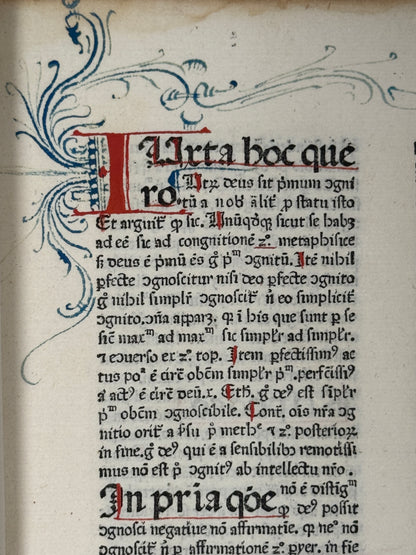 IUxta hoc que
ro. Utꝝ deus sit p̄mum ɔgni
tū a nob̄ ãlit̃ ꝑ statu isto
Et arguit̃ ꝙ sic. Unūqd̃qꝫ sicut se habꝫ
ad eē sic ad congnitionē 2º metaphisice
sꝫ deus ē p̄mū ēs g̊ p̄ᵐ ɔgnitū. Itē nihil
ꝑfecte ɔgnoscitur nisi deo ꝑfecte ɔgnito
g̊ nihil simplr̃ ɔgnoscit̃ ñ eo simplicit̃
ɔgnito. ɔña apparꝫ. qꝛ ĩ his que sunt ꝑ se
sic̃ maxᵐ ad maxᵐ sic simplr̃ ad simplr̃.
⁊ ecõuerso ex 2º. top. Item ꝑfectissimꝰ ac
tus poᵃ ē circ̃ obc̃m simplr̃ p̄ᵐ. ꝑfc̃issimꝰ
aͥ actꝰ ē circ̃ deū. x. Eth. g̊ deꝰ est simplr̃
p̄ᵐ obc̃m ɔgnoscibile. Cont̃. oĩs nr̃a ɔg
nitio orit̃ a sēsu p̊ methᵉ ⁊ 2º. posterioꝝ
in fine. g̊ deꝰ qui ē a sensibilibꝰ remotissi
mus nō est p̊ ɔgnitꝰ ab intellectu nr̃o.
In pria qõe nō ē distigᵐ
ꝙ deꝰ possit
ɔgnosci negatiue nō affirmatie. qꝛ neº nō
ɔgnoscit̃ ñ ꝑ affirmationē 2º. ꝑyer. in fie